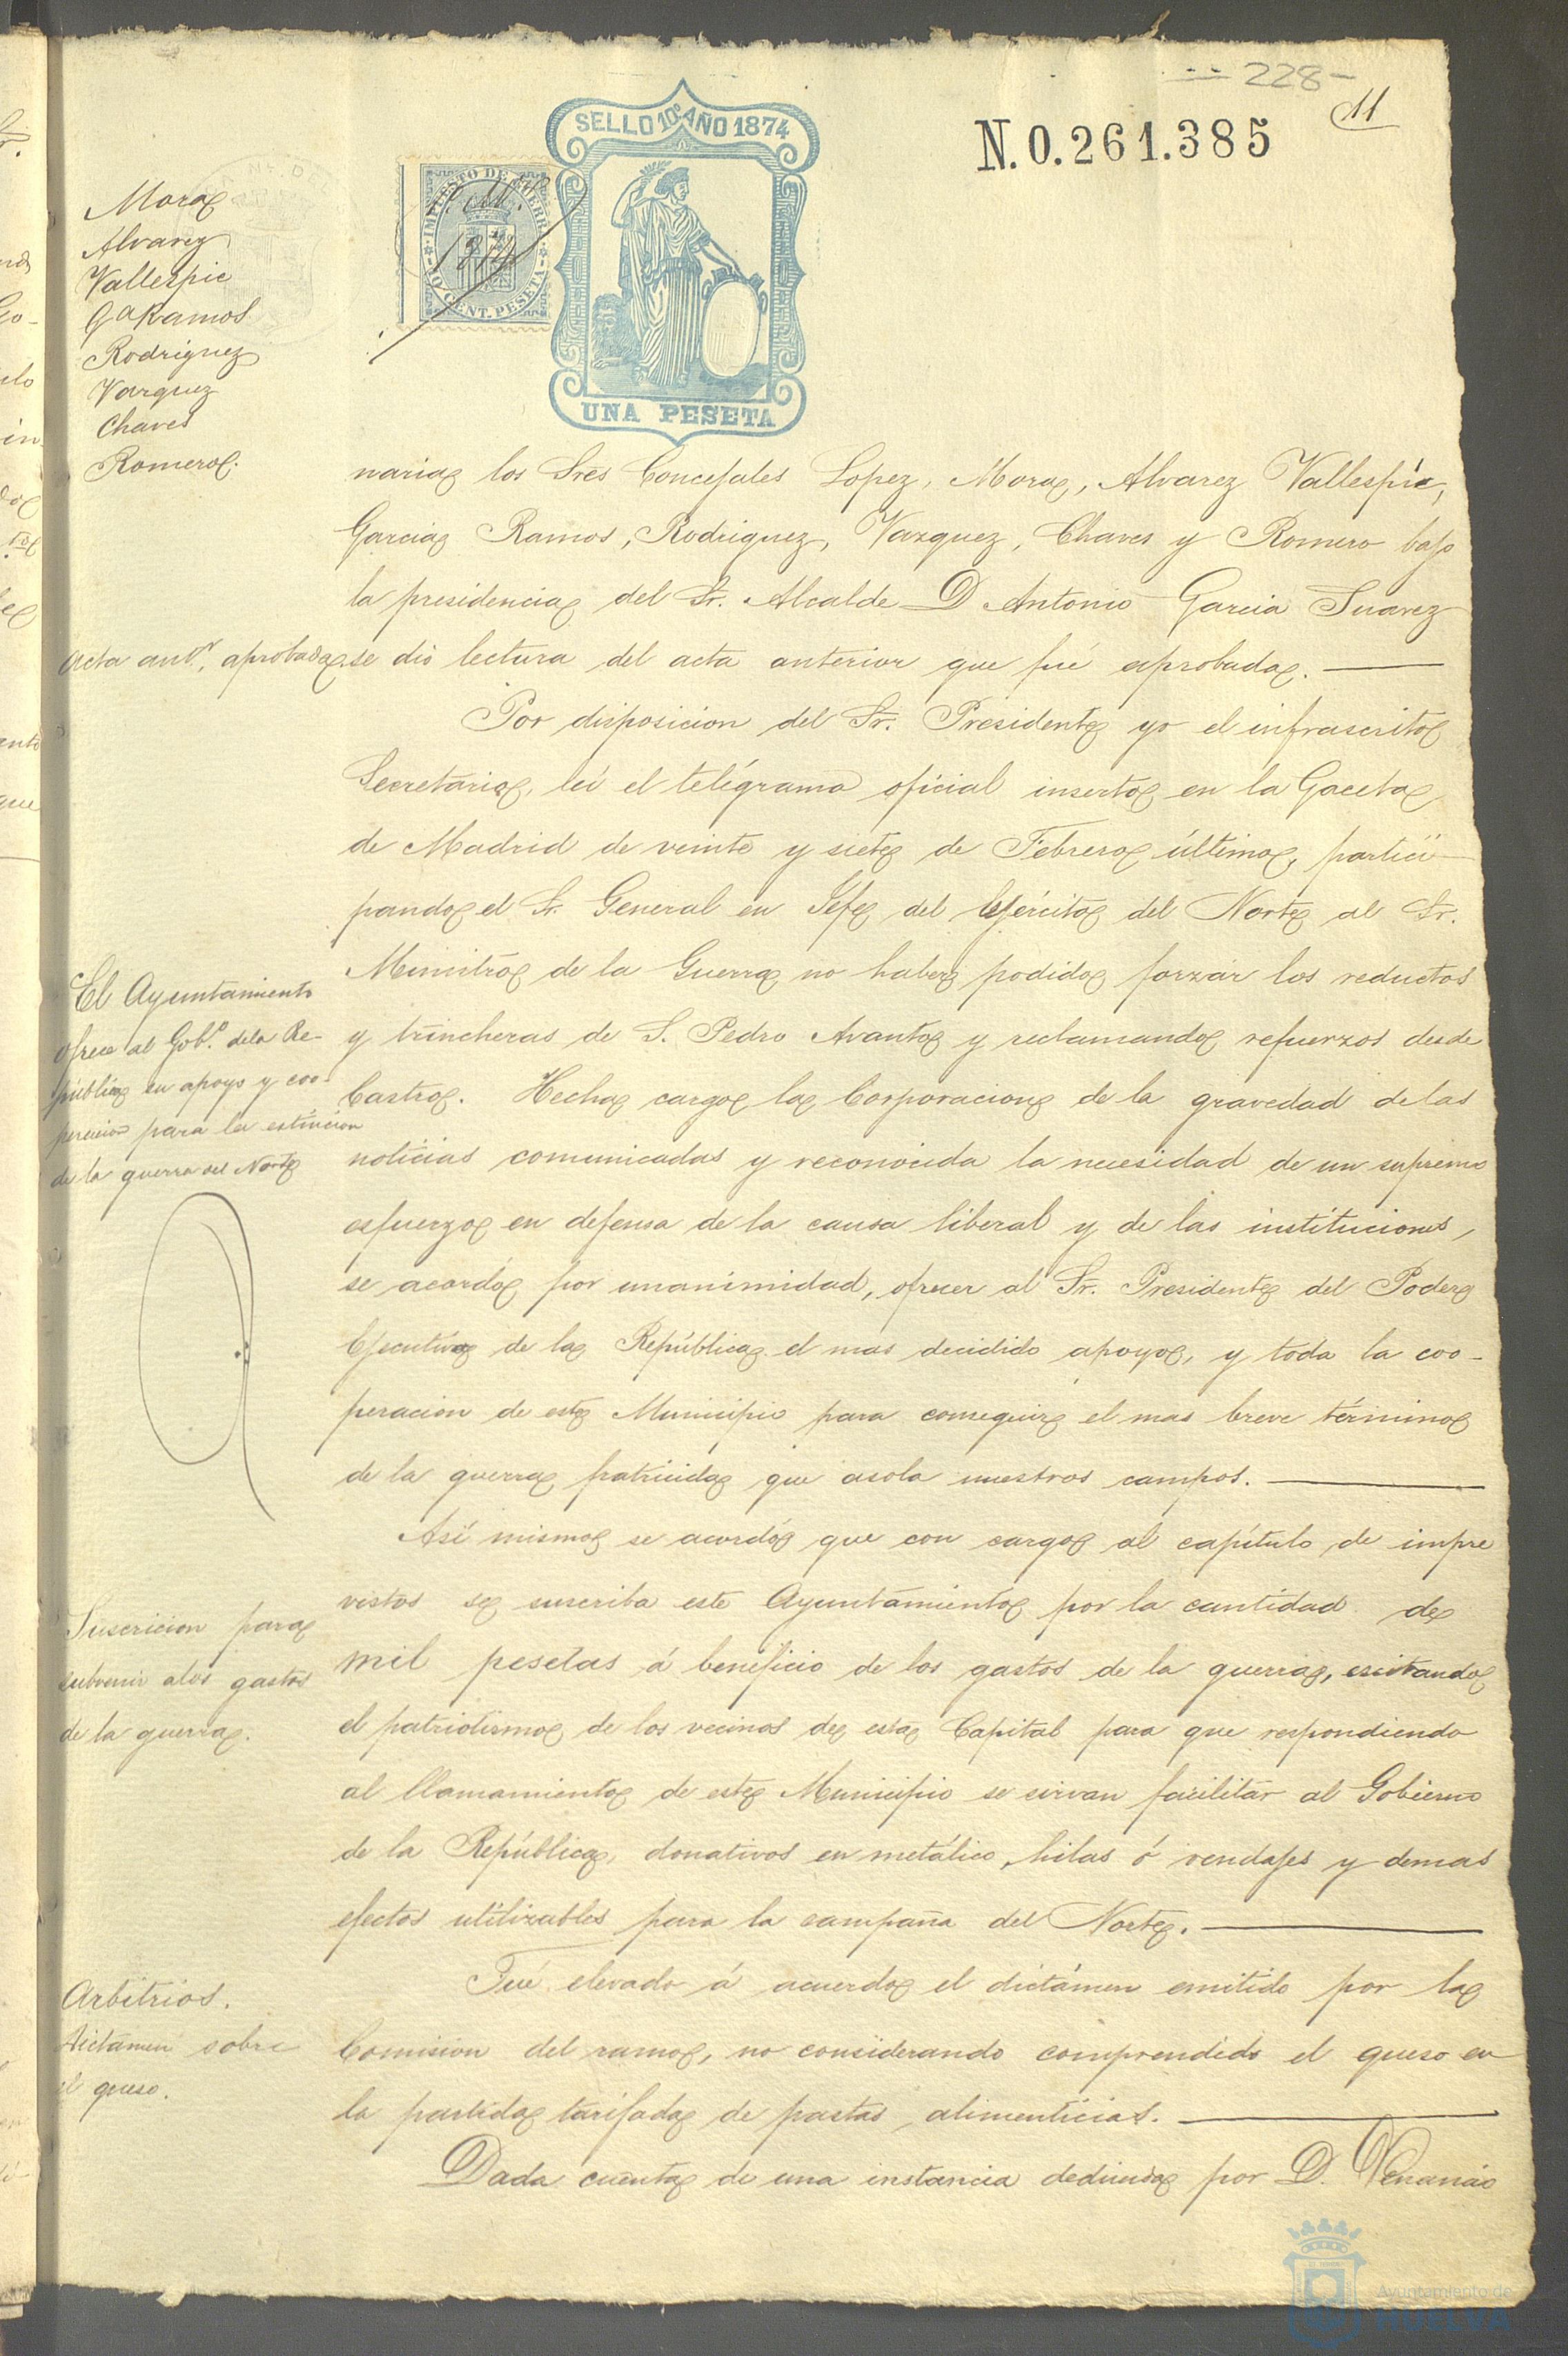 228-
11
N.0.261.385
SELLO 10º AÑO 1874
IMPUESTO DE GUERRA
1874
10 CENT. PESETA
UNA PESETA
Mora
Alvarez
Vallespie
Ga Ramos
Rodriguez
Vazquez
Chaves
Romero.
naria los Sres Concejales Lopez, Mora, Alvarez Vallespie,
Garcia Ramos, Rodriguez, Vazquez, Chaves y Romero bajo
la presidencia del Sr. Alcalde D Antonio Garcia Suarez
Acta antr. aprobada
se dió lectura del acta anterior que fué aprobada.
Por disposicion del Sr. Presidente yo el infrascrito
Secretario, leí el telégrama oficial inserto en la Gaceta
de Madrid de veinte y siete de Febrero último, partici
pando el Sr. General en Gefe del Ejército del Norte al Sr.
Ministro de la Guerra no haber podido forzar los reductos
y trincheras de S. Pedro Avanto y reclamando refuerzos desde
Castro. Hecha cargo la Corporacion de la gravedad de las
noticias comunicadas y reconocida la necesidad de un supremo
esfuerzo en defensa de la causa liberal y de las instituciones,
se acordó por unanimidad, ofrecer al Sr. Presidente del Poder
Ejecutivo de la República el mas decidido apoyo, y toda la coo-
peracion de este Municipio para conseguir el mas breve término
de la guerra fratricida que asola nuestros campos.
El Ayuntamiento
ofrece al Gobº. dela Re-
pública su apoyo y coo-
peracion para la estincion
de la guerra del Norte
Así mismo se acordó que con cargo al capítulo de impre
vistos se suscriba este Ayuntamiento por la cantidad de
mil pesetas á beneficio de los gastos de la guerra, escitando
el patriotismo de los vecinos de esta Capital para que respondiendo
al llamamiento de este Municipio se sirvan facilitar al Gobierno
de la República, donativos en metálico, hilas ó vendajes y demas
efectos utilizables para la campaña del Norte.
Suscricion para
subvenir alos gastos
de la guerra.
Fué elevado á acuerdo el dictámen emitido por la
Comision del ramo, no considerando comprendido el queso en
la partida tarifada de pastas alimenticias.
Arbitrios.
Dictamen sobre
el queso.
Dada cuenta de una instancia deducida por D. Venancio
Ayuntamiento de
HUELVA